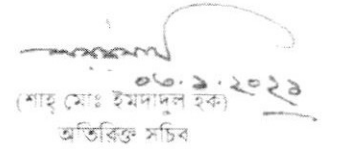 ০৬.১.২০২১
(শাহ্ মোঃ ইমদাদুল হক)
অতিরিক্ত সচিব